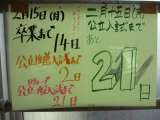 2月15日(月)
卒業まで
14日
公立推薦入試まで
2日
公立一般入試まで
21日
二月十五日(月)
公立入試まで
あと
21
日